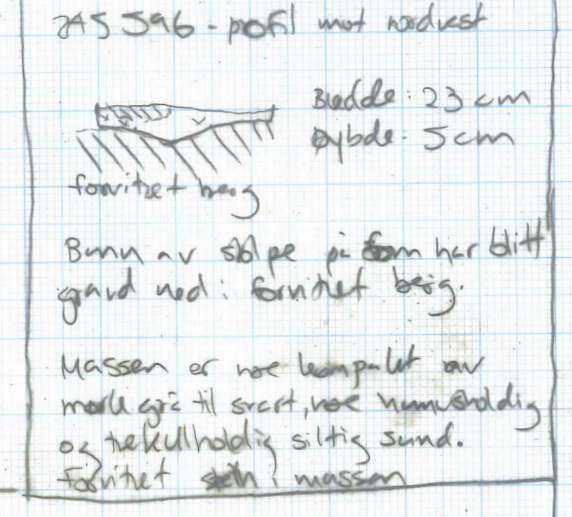 2A5596 - profil mot nordvest
Bredde: 23 cm
Dybde: 5 cm
forvitret berg
Bunn av stolpe på som har blitt
gravd ned i forvitret berg.
Massen er noe kompakt av
mørk grå til svart, noe humusholdig
og trekullholdig siltig sand.
Forvitret stein i massen